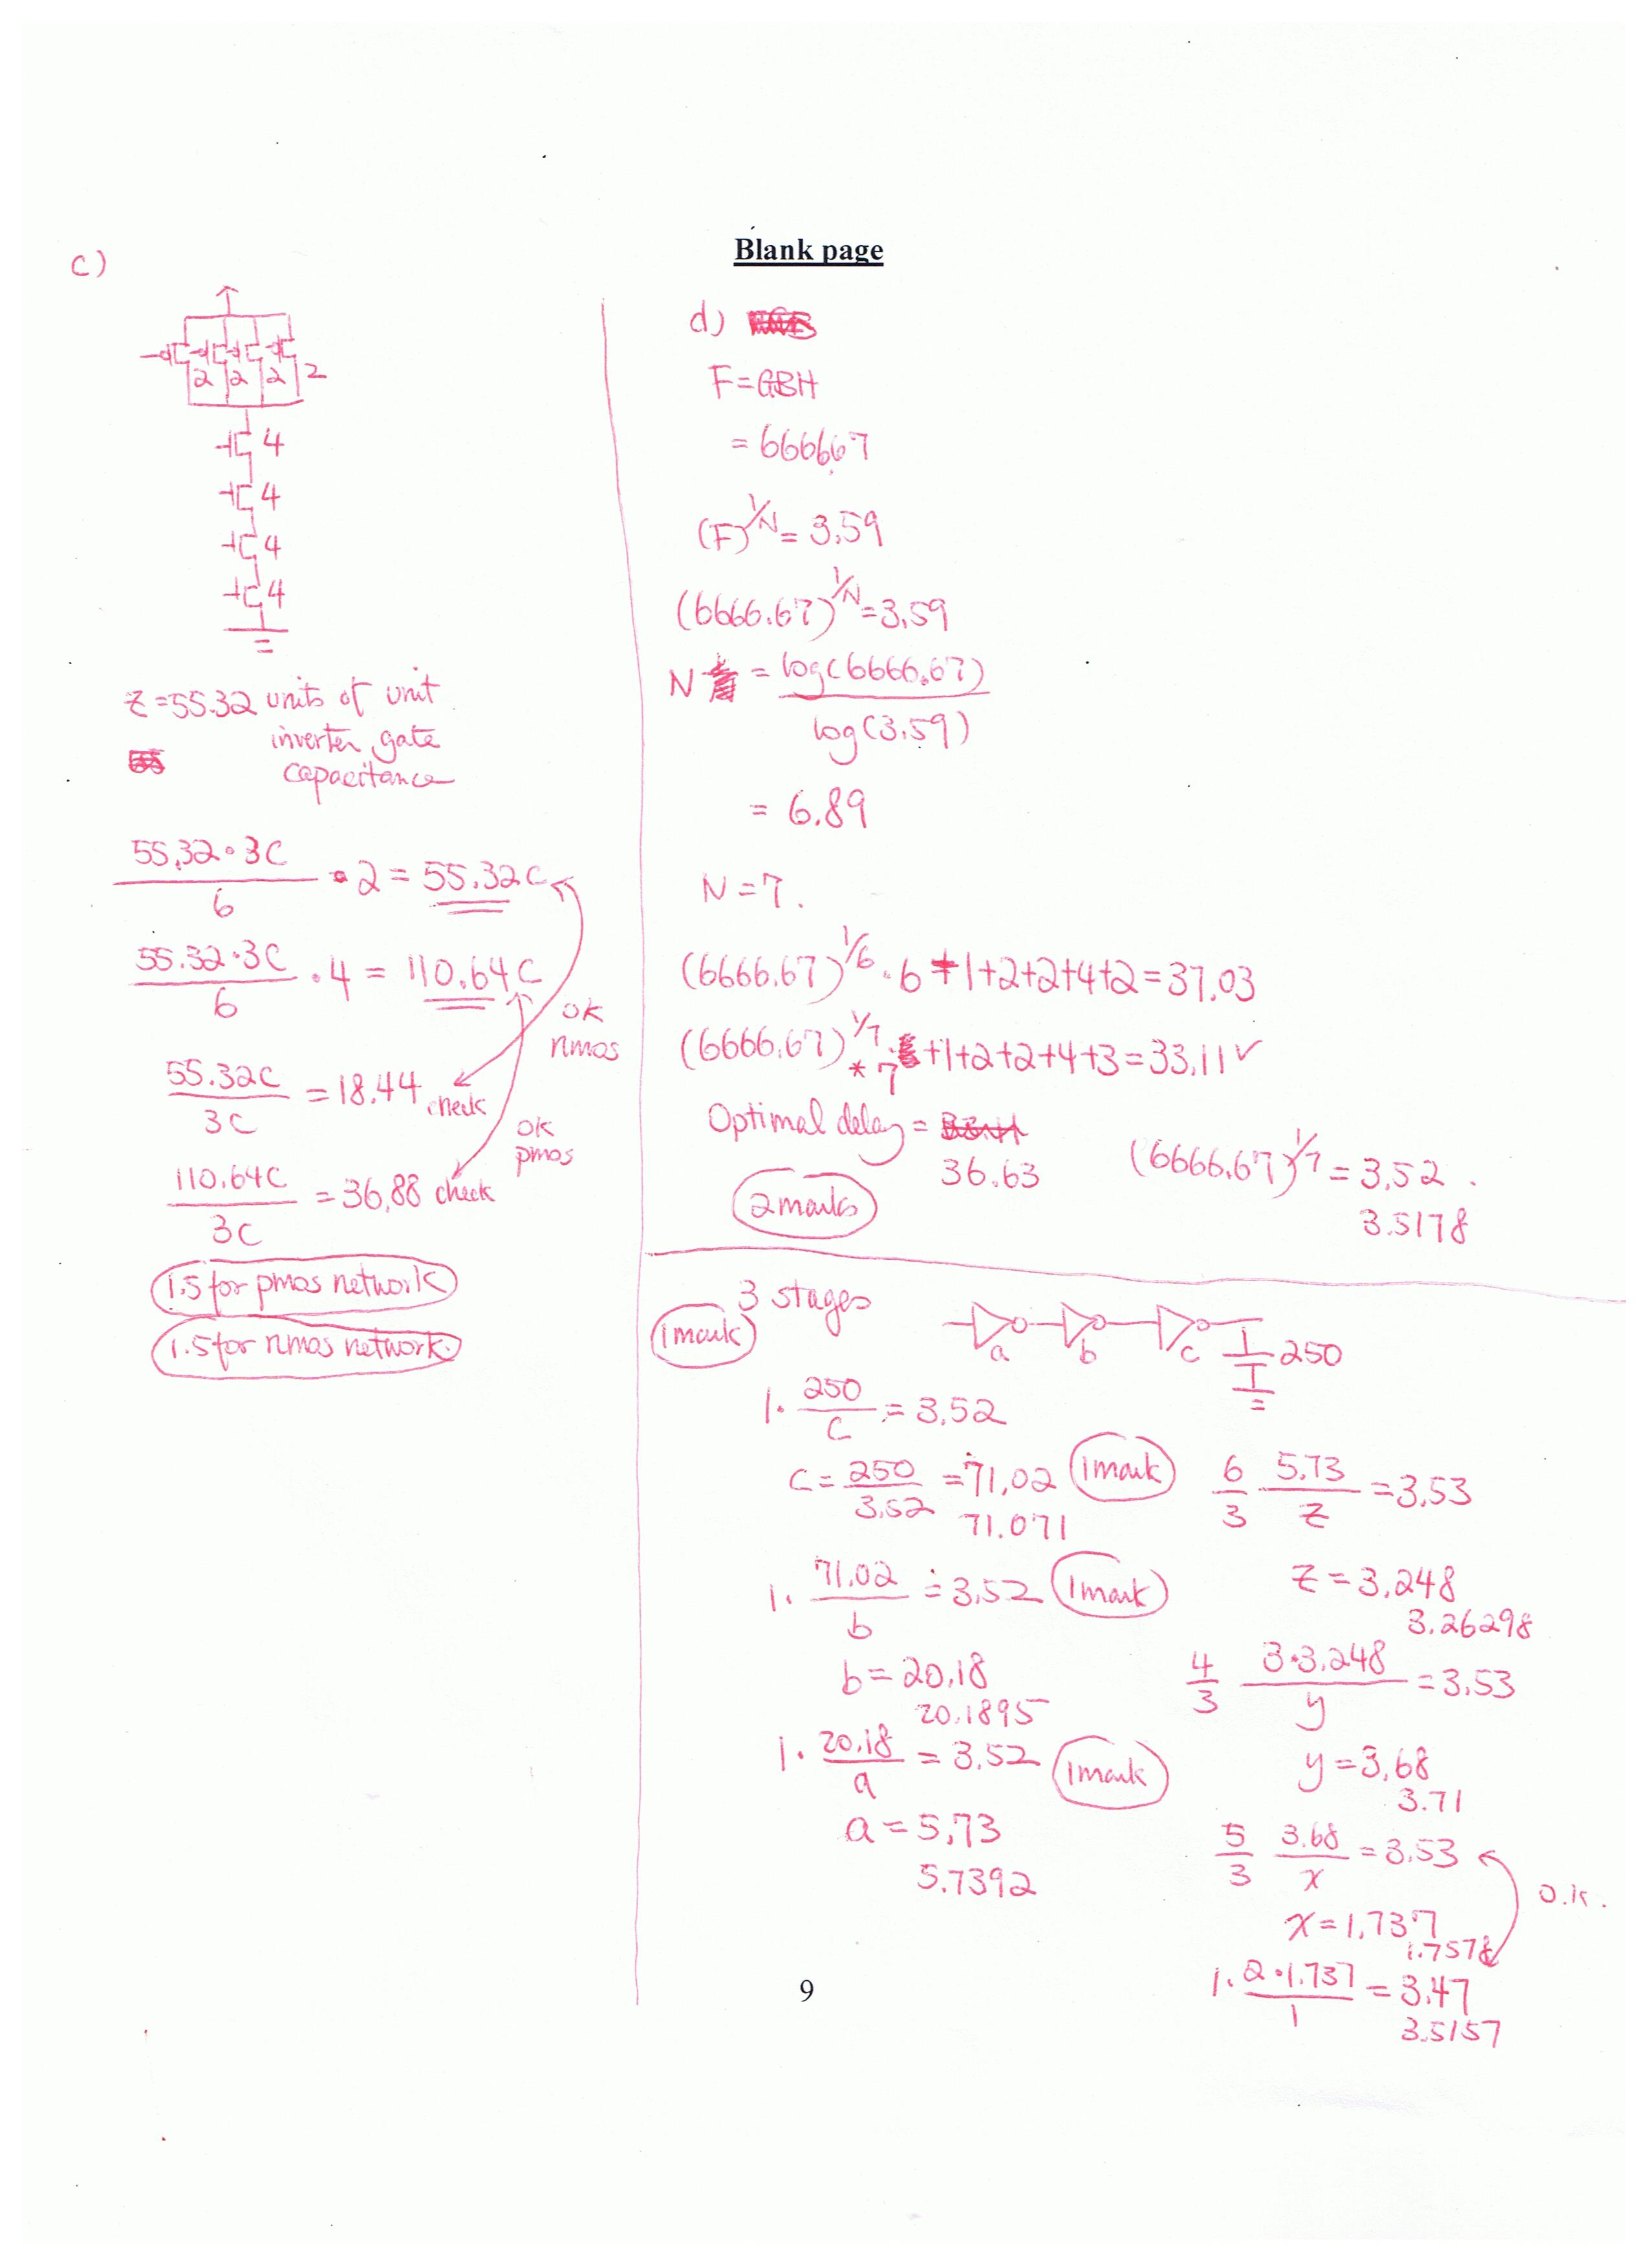 Blank page
c)
2 2 2 2
4
4
4
4
z = 55.32 units of unit
inverter gate
capacitance
55.32 · 3C / 6 · 2 = 55.32C
55.32 · 3C / 6 · 4 = 110.64C
ok
nmos
55.32C / 3C = 18.44 check
ok
pmos
110.64C / 3C = 36.88 check
1.5 for pmos network
1.5 for nmos network.
d)
F = GBH
= 666667
(F)^1/N = 3.59
(6666.67)^1/N = 3.59
N = log(6666.67) / log(3.59)
= 6.89
N = 7.
(6666.67)^1/6 · 6 + 1+2+2+4+2 = 37.03
(6666.67)^1/7 * 7 +1+2+2+4+3 = 33.11 ✓
Optimal delay =
36.63
(6666.67)^1/7 = 3.52.
3.5178
2 marks
3 stages
1 mark
a b c 250
1 · 250 / C = 3.52
C = 250 / 3.52 = 71.02 1 mark
71.071
1 · 71.02 / b = 3.52 1 mark
b = 20.18
20.1895
1 · 20.18 / a = 3.52 1 mark
a = 5.73
5.7392
6/3 5.73 / z = 3.53
z = 3.248
3.26298
4/3 3·3.248 / y = 3.53
y = 3.68
3.71
5/3 3.68 / x = 3.53
o.k.
x = 1.737
1.7578
1 · 2·1.737 / 1 = 3.47
3.5157
9